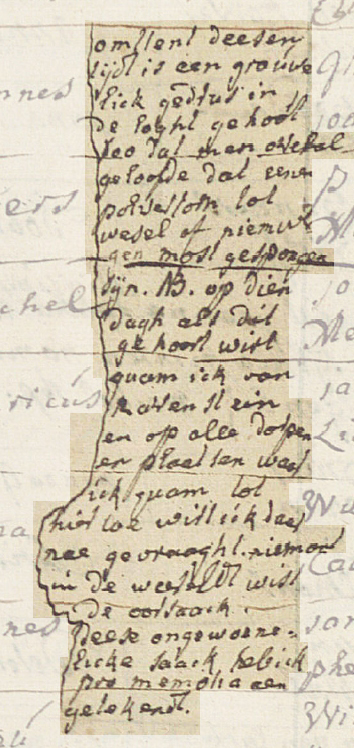 omtlent deesen
tijdt is een grouwe
lick gedrus in
de loght gehoort
soo dat men overal
geloofde dat eenen
polvertorn tot
wesel of nieumE
gen most gesprongen
sijn. NB. op dien
dagh als dit
gehoort wirt
quam ick von
Ravenstein
en op alle dorpen
en plaetsen waer
ick quam tot
hier toe wirt ick daer
nae gevraaght. niemant
in de weereldt wist
de oorsaack.
deese ongewoone-
licke saack heb ick
pro memoria aen
getekendt.